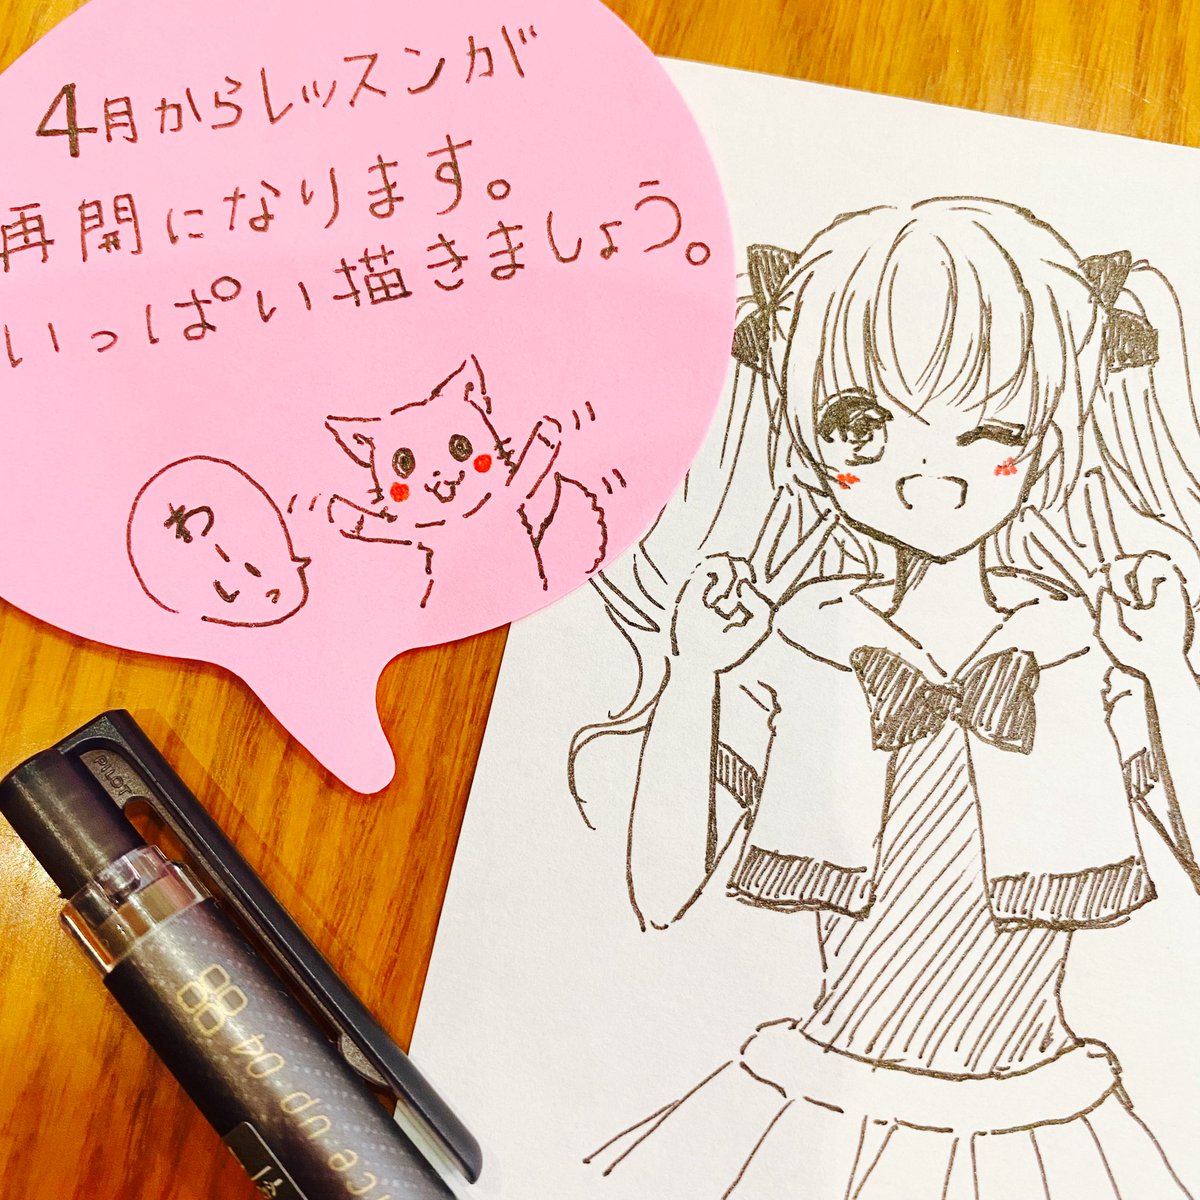 4月からレッスンが
再開になります。
いっぱい描きましょう。
わーいっ
PILOT
ce up 04